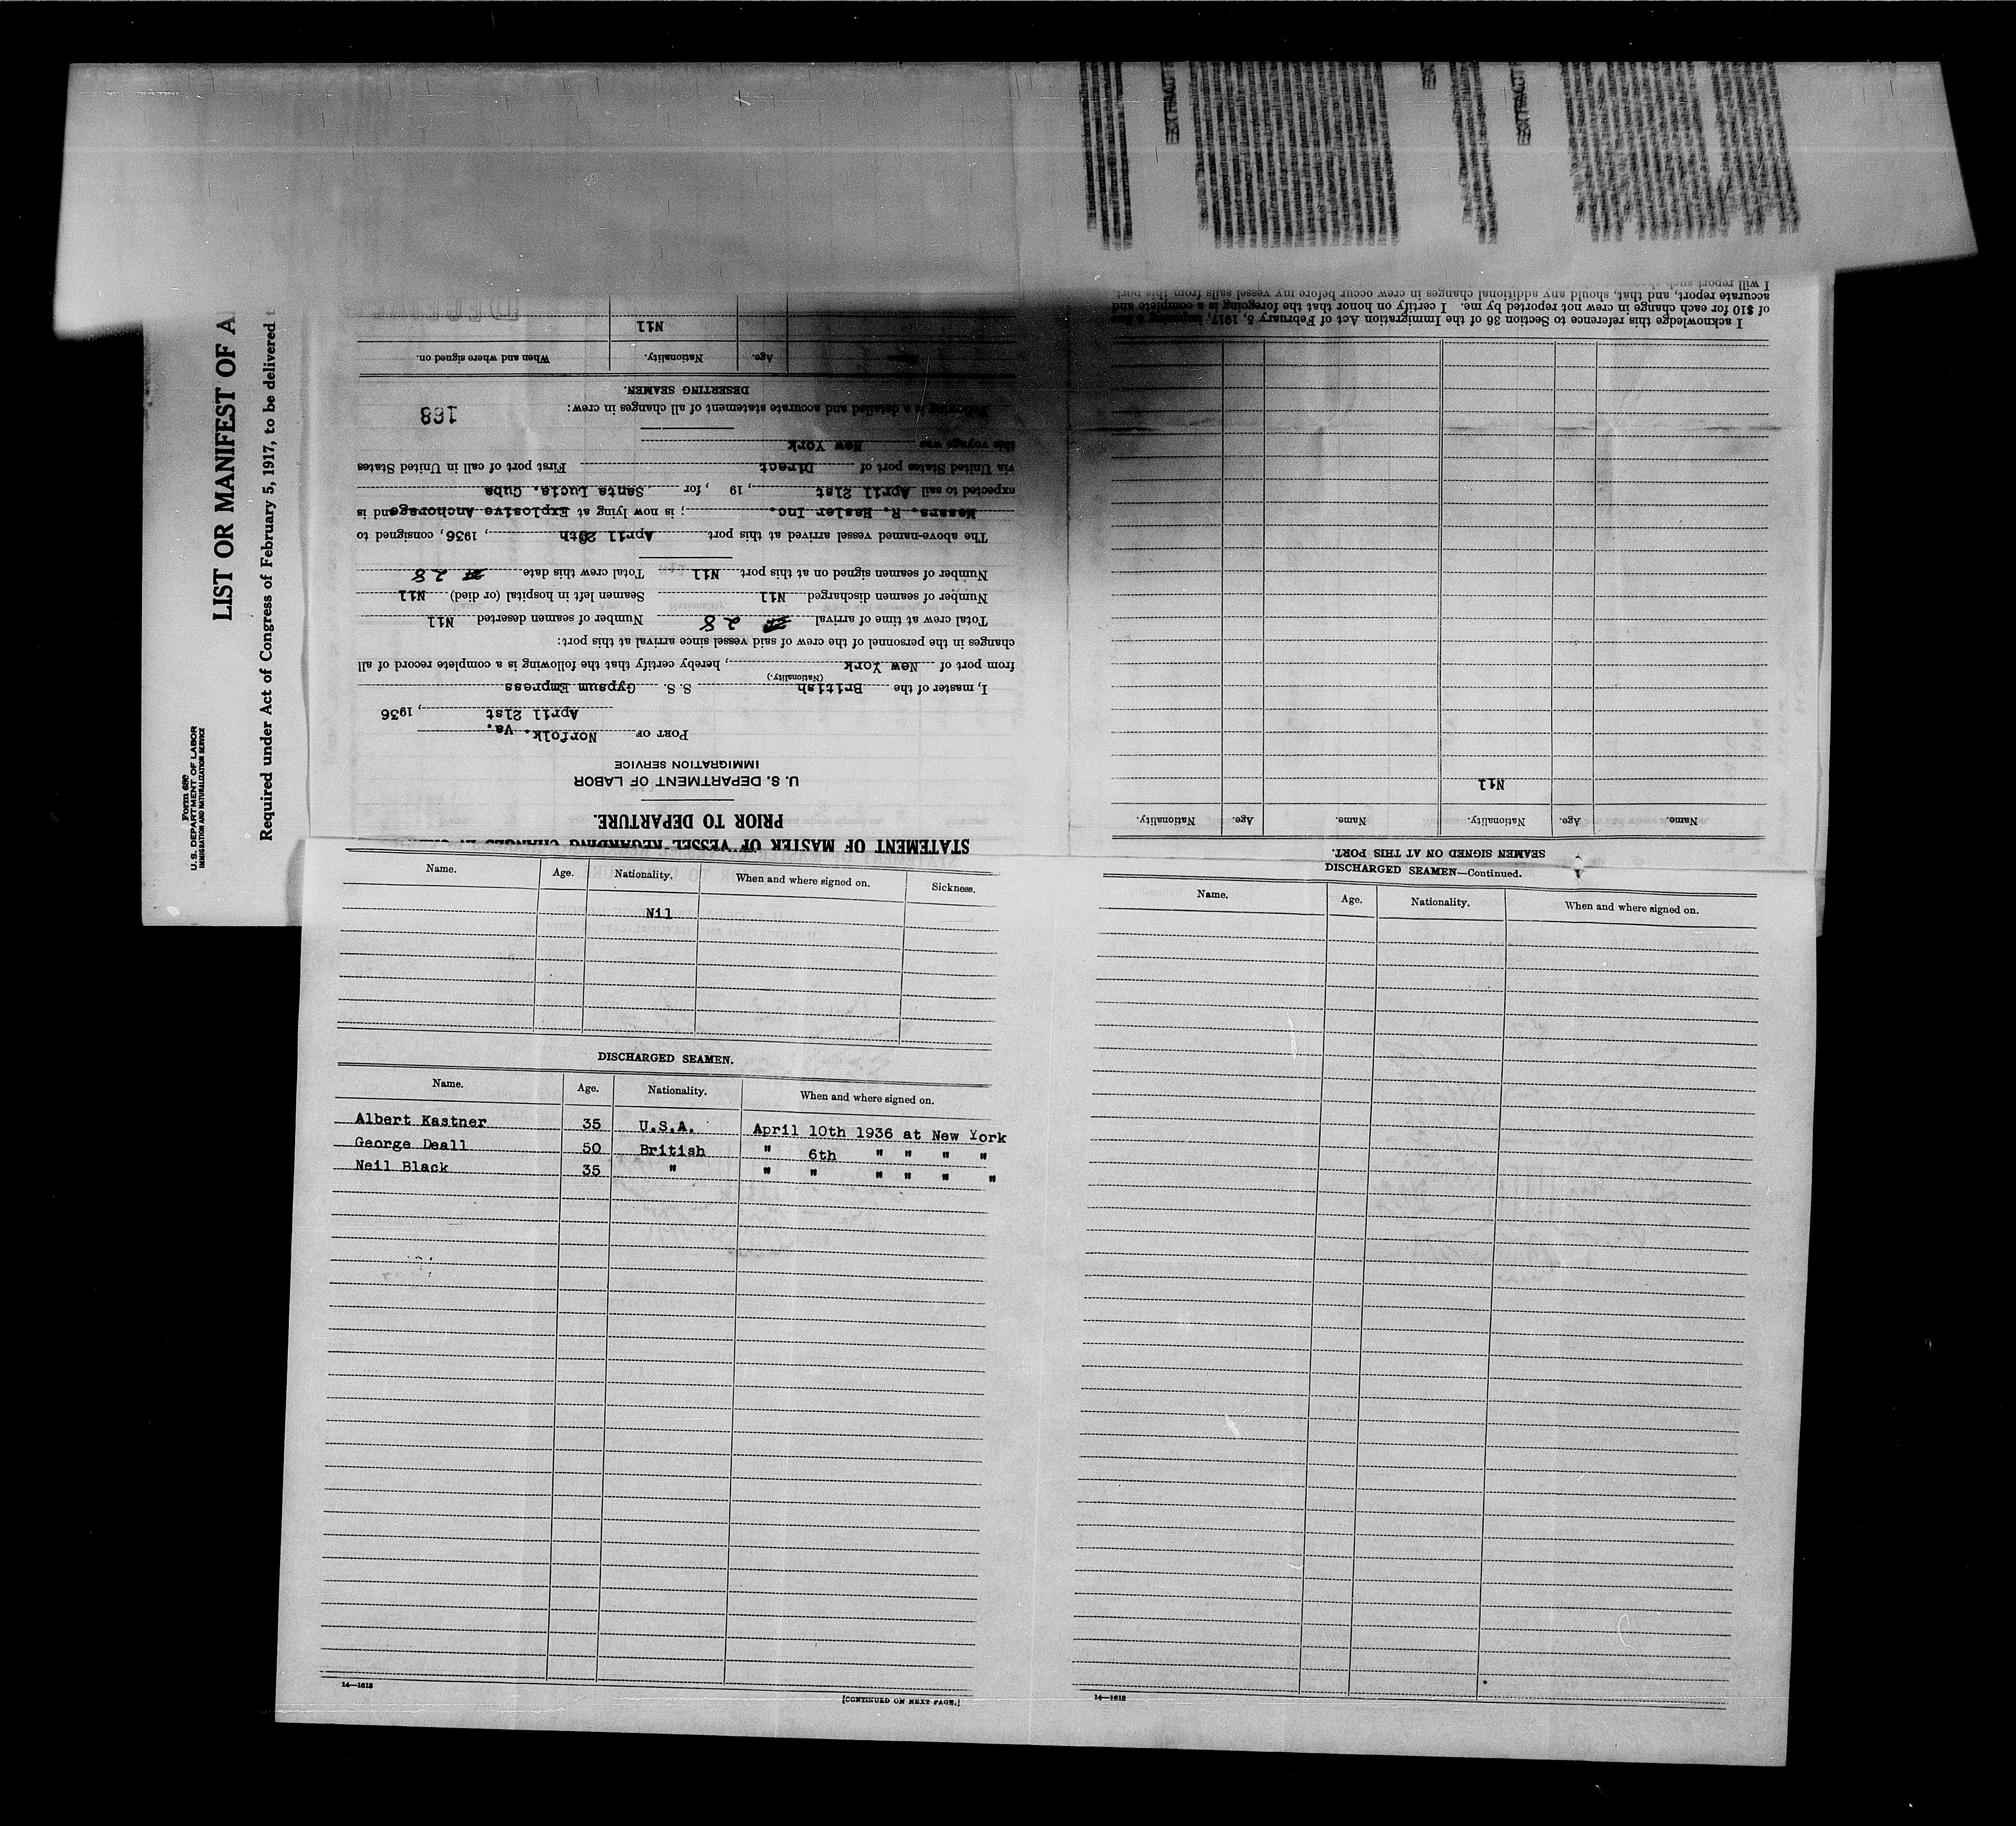 EXTRACT
EXTRACT
Form 680
U. S. DEPARTMENT OF LABOR
IMMIGRATION AND NATURALIZATION SERVICE
LIST OR MANIFEST OF A
Required under Act of Congress of February 5, 1917, to be delivered t
STATEMENT OF MASTER OF VESSEL REGARDING CHANGES
PRIOR TO DEPARTURE.
U. S. DEPARTMENT OF LABOR
IMMIGRATION SERVICE
PORT OF Norfolk. Va.
April 21st, 1936
I, master of the British S. S. Gypsum Empress
(Nationality.)
from port of New York, hereby certify that the following is a complete record of all
changes in the personnel of the crew of said vessel since arrival at this port:
Total crew at time of arrival 28 Number of seamen deserted Nil
Number of seamen discharged Nil Seamen left in hospital (or died) Nil
Number of seamen signed on at this port Nil Total crew this date 28
The above-named vessel arrived at this port April 20th, 1936, consigned to
Messrs. R. Hasler Inc.; is now lying at Explosive Anchorage and is
expected to sail April 21st, 19 , for Santa Lucia. Cuba
via United States port of Direct First port of call in United States
this voyage was New York
Following is a detailed and accurate statement of all changes in crew: 168
DESERTING SEAMEN.
Name. Age. Nationality. When and where signed on.
Nil
SEAMEN SIGNED ON AT THIS PORT.
Name. Age. Nationality. Name. Age. Nationality.
Nil
I acknowledge this reference to Section 36 of the Immigration Act of February 5, 1917, imposing a fine
of $10 for each change in crew not reported by me. I certify on honor that the foregoing is a complete and
accurate report, and that, should any additional changes in crew occur before my vessel sails from this port,
I will report such
Name. Age. Nationality. When and where signed on. Sickness.
Nil
DISCHARGED SEAMEN.
Name. Age. Nationality. When and where signed on.
Albert Kastner 35 U.S.A. April 10th 1936 at New York
George Deall 50 British " 6th " " " "
Neil Black 35 " " " " " " "
14—1618
[CONTINUED ON NEXT PAGE.]
DISCHARGED SEAMEN—Continued.
Name. Age. Nationality. When and where signed on.
14—1618